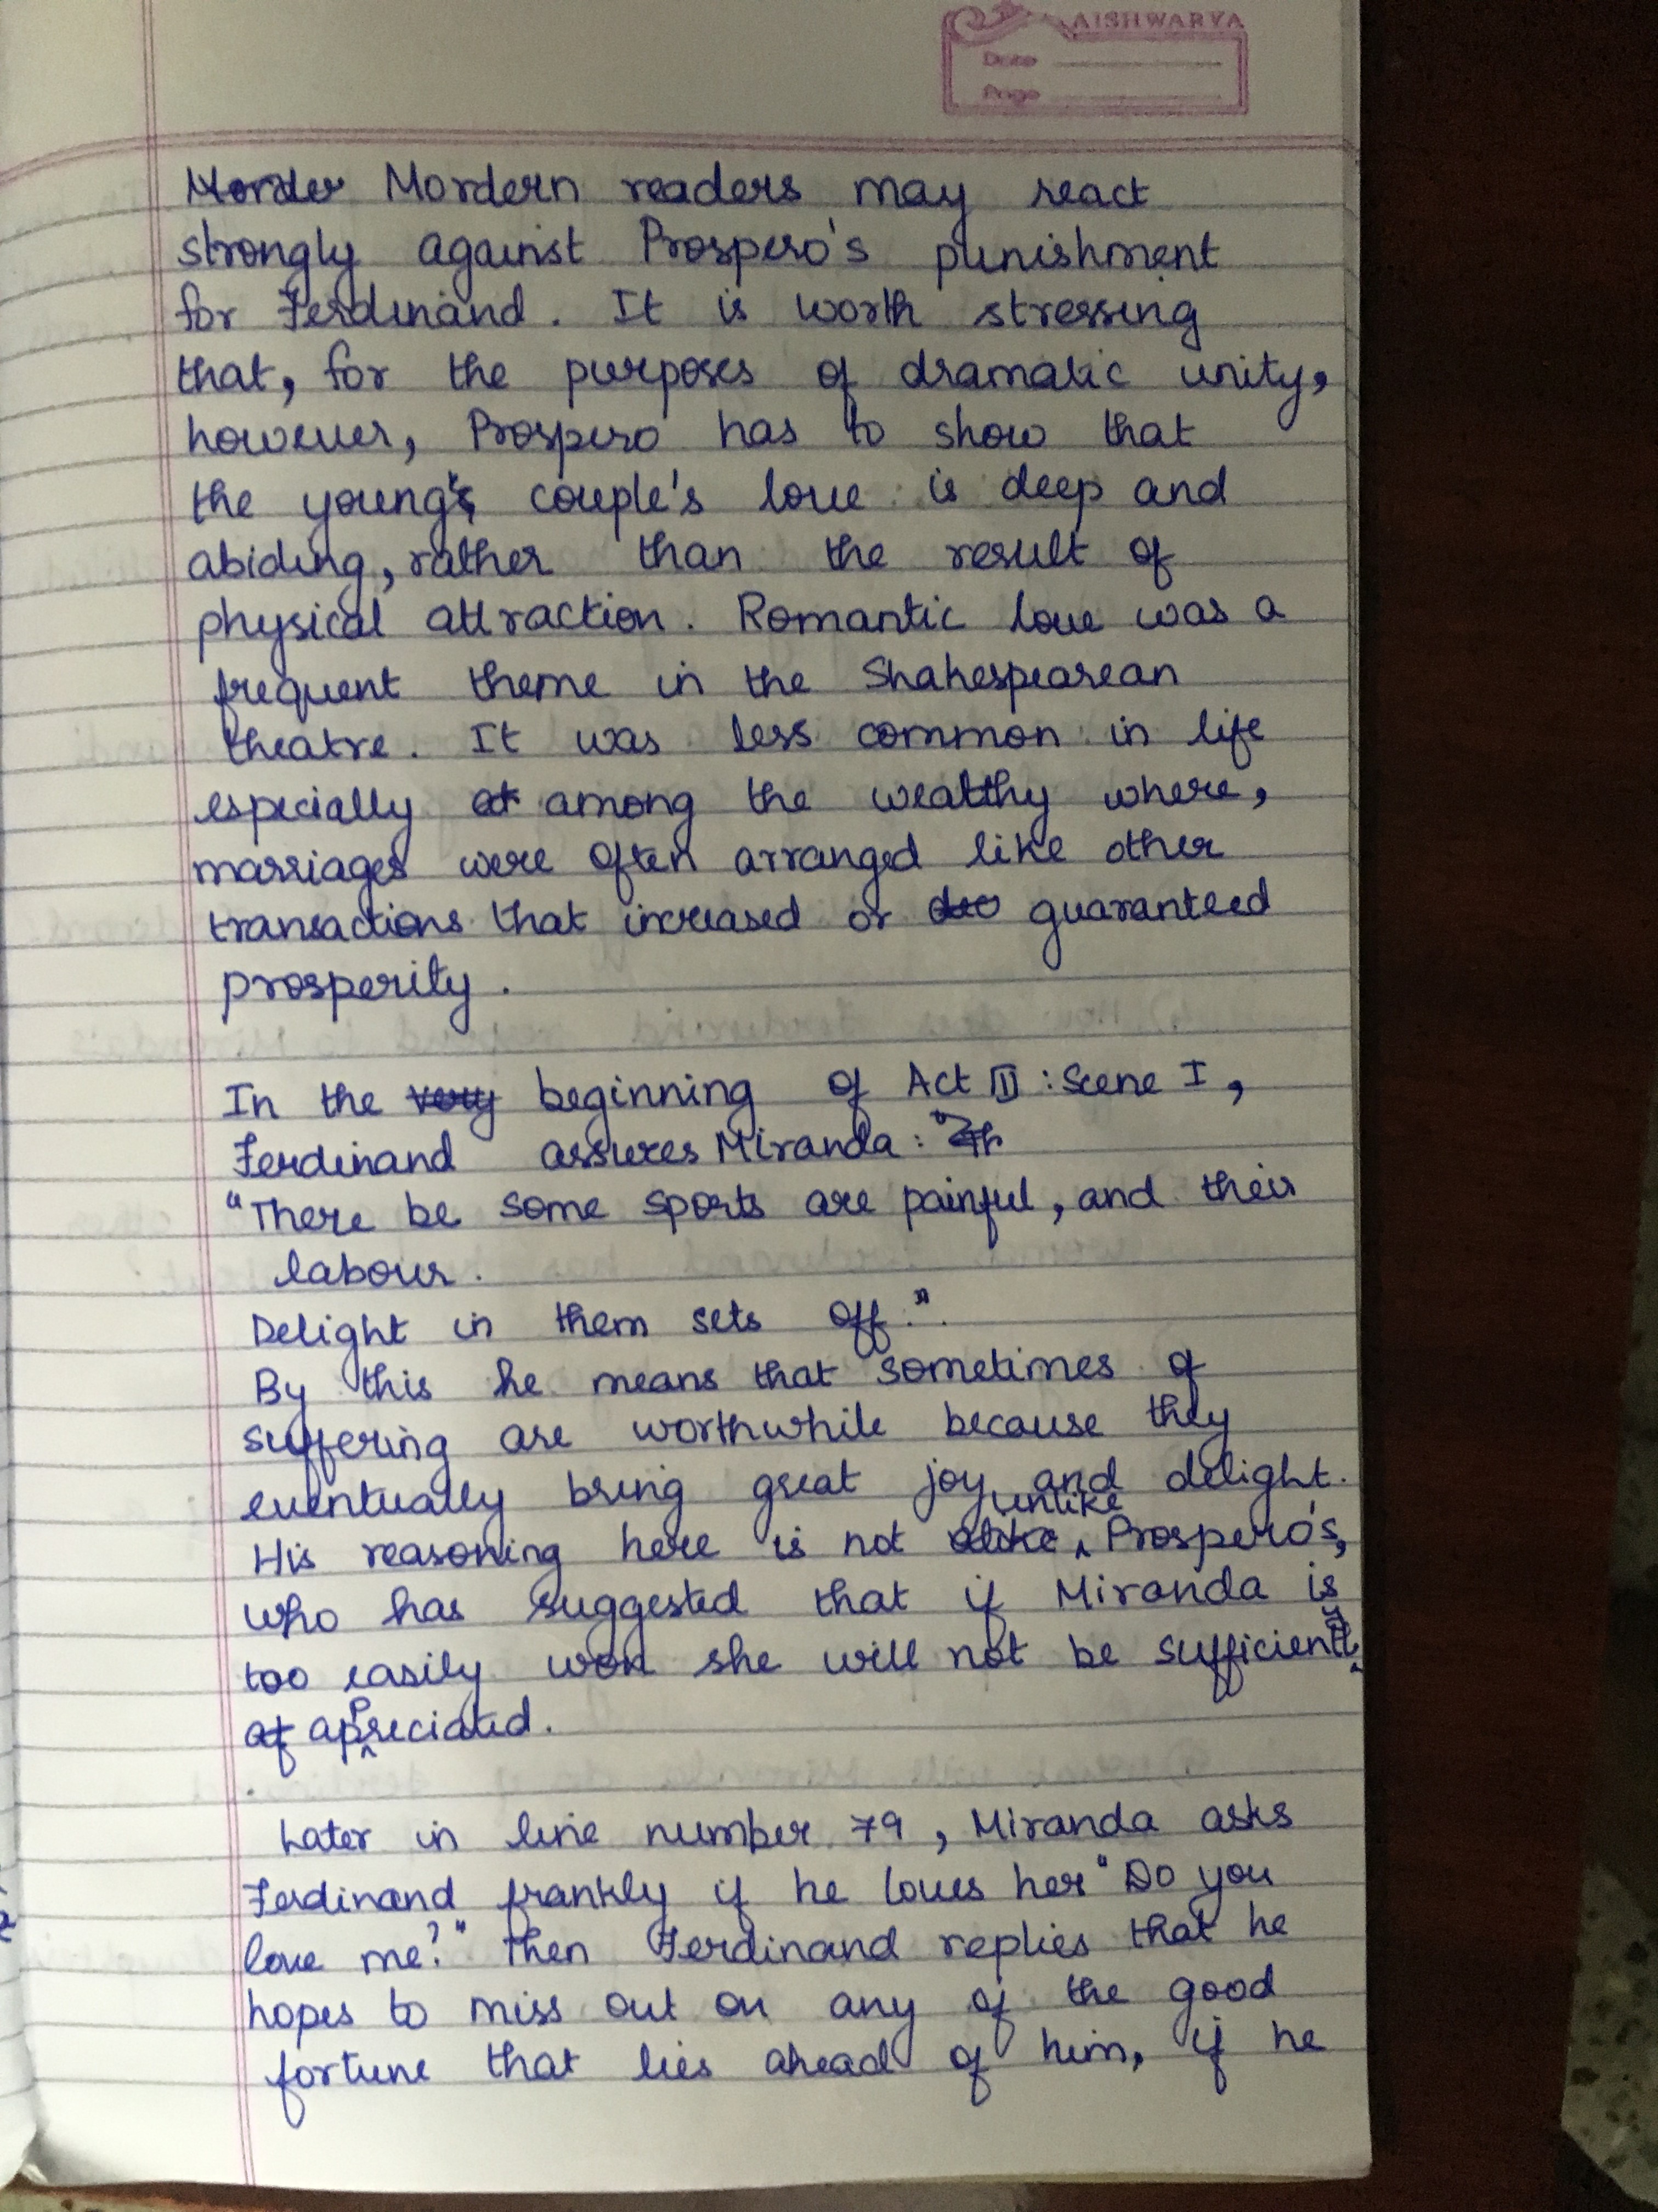 AISHWARYA
Date
Page
Mordern readers may react
strongly against Prospero's punishment
for Ferdinand. It is worth stressing
that, for the purposes of dramatic unity,
however, Prospero has to show that
the young couple's love is deep and
abiding, rather than the result of
physical attraction. Romantic love was a
frequent theme in the Shakespearean
theatre. It was less common in life
especially among the wealthy where,
marriages were often arranged like other
transactions that increased or guaranteed
prosperity.
In the very beginning of Act III : Scene I,
Ferdinand assures Miranda :
"There be some sports are painful, and their
labour.
Delight in them sets off.".
By this he means that sometimes of
suffering are worthwhile because they
eventually bring great joy and delight.
His reasoning here is not unlike Prospero's,
who has suggested that if Miranda is
too easily won she will not be sufficiently
appreciated.
Later in line number 79, Miranda asks
Ferdinand frankly if he loves her "Do you
love me?" Then Ferdinand replies that he
hopes to miss out on any of the good
fortune that lies ahead of him, if he